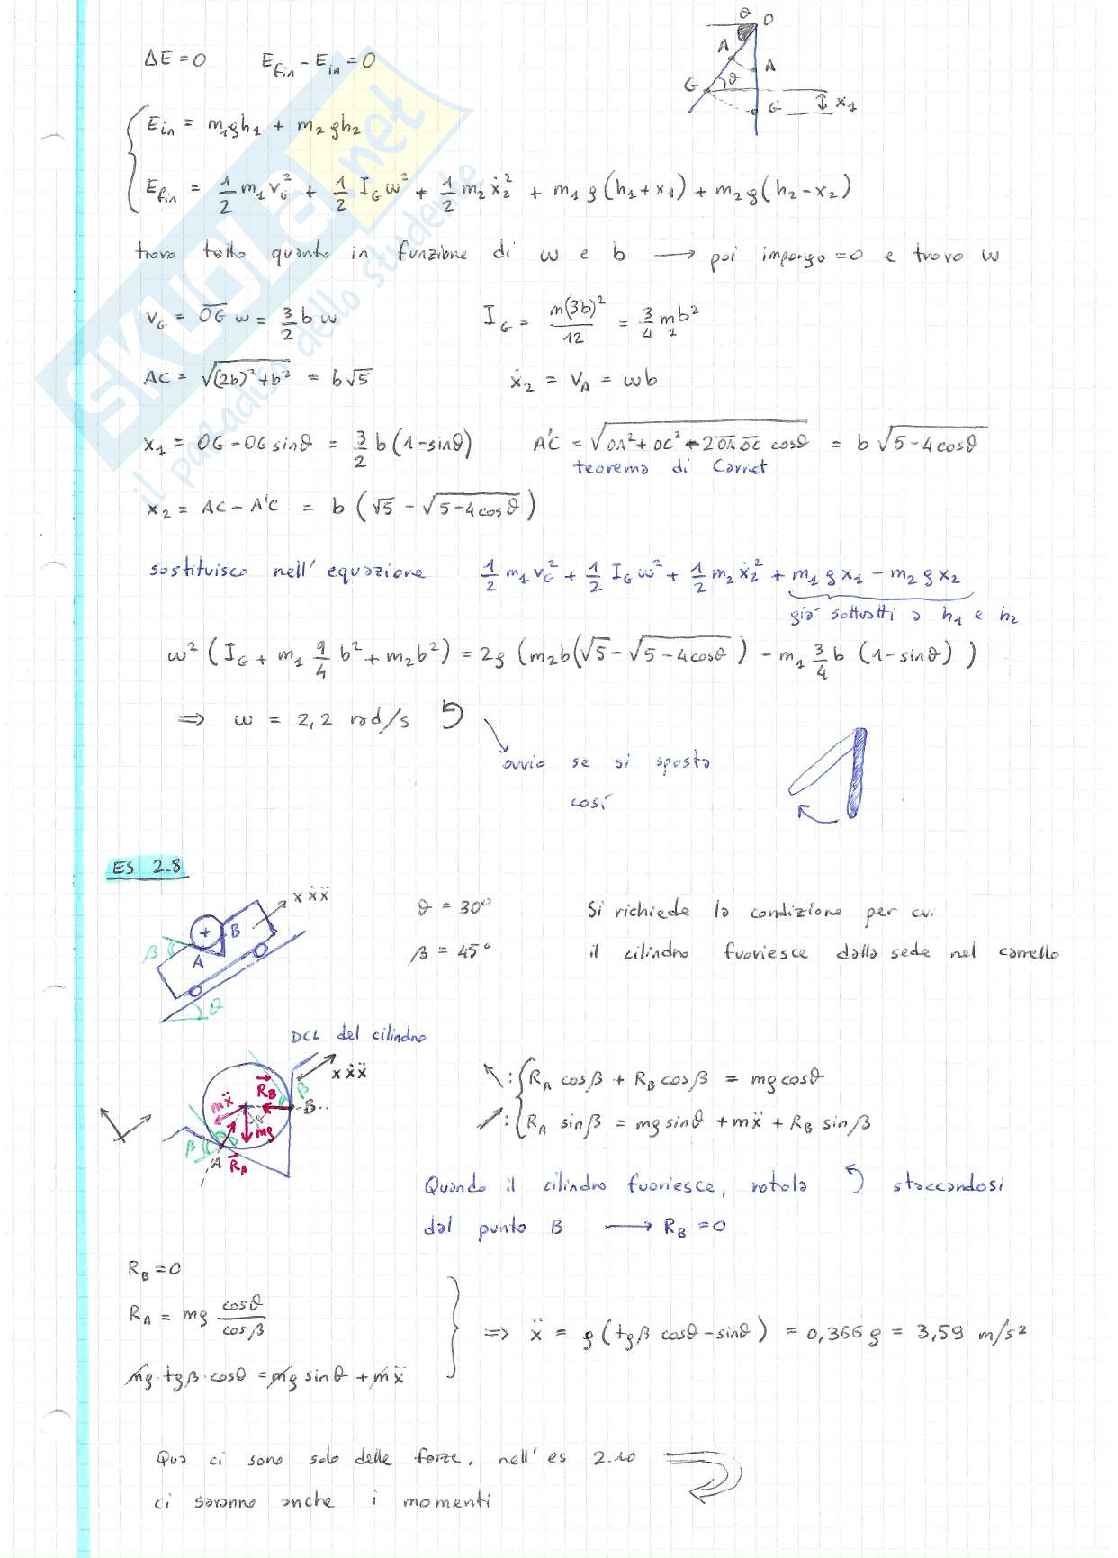 ϑ O
A
A
G ϑ
G x₁
ΔE = 0 E_fin - E_in = 0
E_in = m₁gh₁ + m₂gh₂
E_fin = 1/2 m₁v_G² + 1/2 I_G ω² + 1/2 m₂ẋ₂² + m₁g(h₁+x₁) + m₂g(h₂-x₂)
trovo tutto quanto in funzione di ω e b → poi impongo =0 e trovo ω
v_G = OG ω = 3/2 b ω I_G = m(3b)²/12 = 3/4 m₁b²
AC = √((2b)²+b²) = b√5 ẋ₂ = v_A = ωb
x₁ = OG - OG sinϑ = 3/2 b(1-sinϑ) A'C = √(OA²+OC²-2 OA OC cosϑ) = b√(5-4cosϑ)
teorema di Carnot
x₂ = AC - A'C = b(√5 - √(5-4cosϑ))
sostituisco nell'equazione 1/2 m₁v_G² + 1/2 I_G ω² + 1/2 m₂ẋ₂² + m₁gx₁ - m₂gx₂
già sottratti a h₁ e h₂
ω²(I_G + m₁ 9/4 b² + m₂b²) = 2g(m₂b(√5 - √(5-4cosϑ)) - m₁ 3/4 b (1-sinϑ))
⇒ ω = 2,2 rad/s
ovvio se si sposta
così
ES 2.8
x ẋ ẍ
β B
A
ϑ
ϑ = 30° Si richiede la condizione per cui
β = 45° il cilindro fuoriesce dalla sede nel carrello
DCL del cilindro
x ẋ ẍ
R_B β
mẍ B
mg
β A R_A
R_A cosβ + R_B cosβ = mg cosϑ
R_A sinβ = mg sinϑ + mẍ + R_B sinβ
Quando il cilindro fuoriesce, rotola staccandosi
dal punto B → R_B = 0
R_B = 0
R_A = mg cosϑ/cosβ
⇒ ẍ = g(tgβ cosϑ - sinϑ) = 0,366 g = 3,59 m/s²
mg·tgβ·cosϑ = mg sinϑ + mẍ
Qua ci sono solo delle forze, nell'es 2.10
ci saranno anche i momenti
SKUOLA.net
il paradiso dello studente